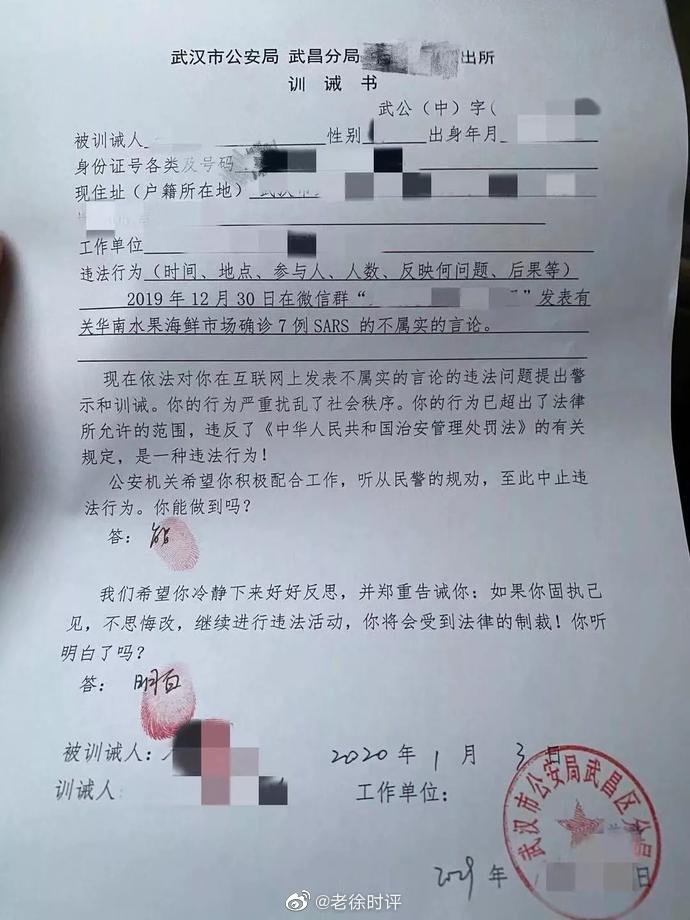 武汉市公安局 武昌分局 出所
训 诫 书
武公（中）字（
被训诫人 性别 出身年月
身份证号各类及号码
现住址（户籍所在地）武汉市
工作单位
违法行为（时间、地点、参与人、人数、反映何问题、后果等）
2019 年 12 月 30 日在微信群“ ”发表有
关华南水果海鲜市场确诊 7 例 SARS 的不属实的言论。
现在依法对你在互联网上发表不属实的言论的违法问题提出警
示和训诫。你的行为严重扰乱了社会秩序。你的行为已超出了法律
所允许的范围，违反了《中华人民共和国治安管理处罚法》的有关
规定，是一种违法行为！
公安机关希望你积极配合工作，听从民警的规劝，至此中止违
法行为。你能做到吗？
答：能
我们希望你冷静下来好好反思，并郑重告诫你：如果你固执己
见，不思悔改，继续进行违法活动，你将会受到法律的制裁！你听
明白了吗？
答：明白
被训诫人： 2020 年 1 月 3 日
训诫人： 工作单位：
武汉市公安局武昌区分局
年 日
@老徐时评